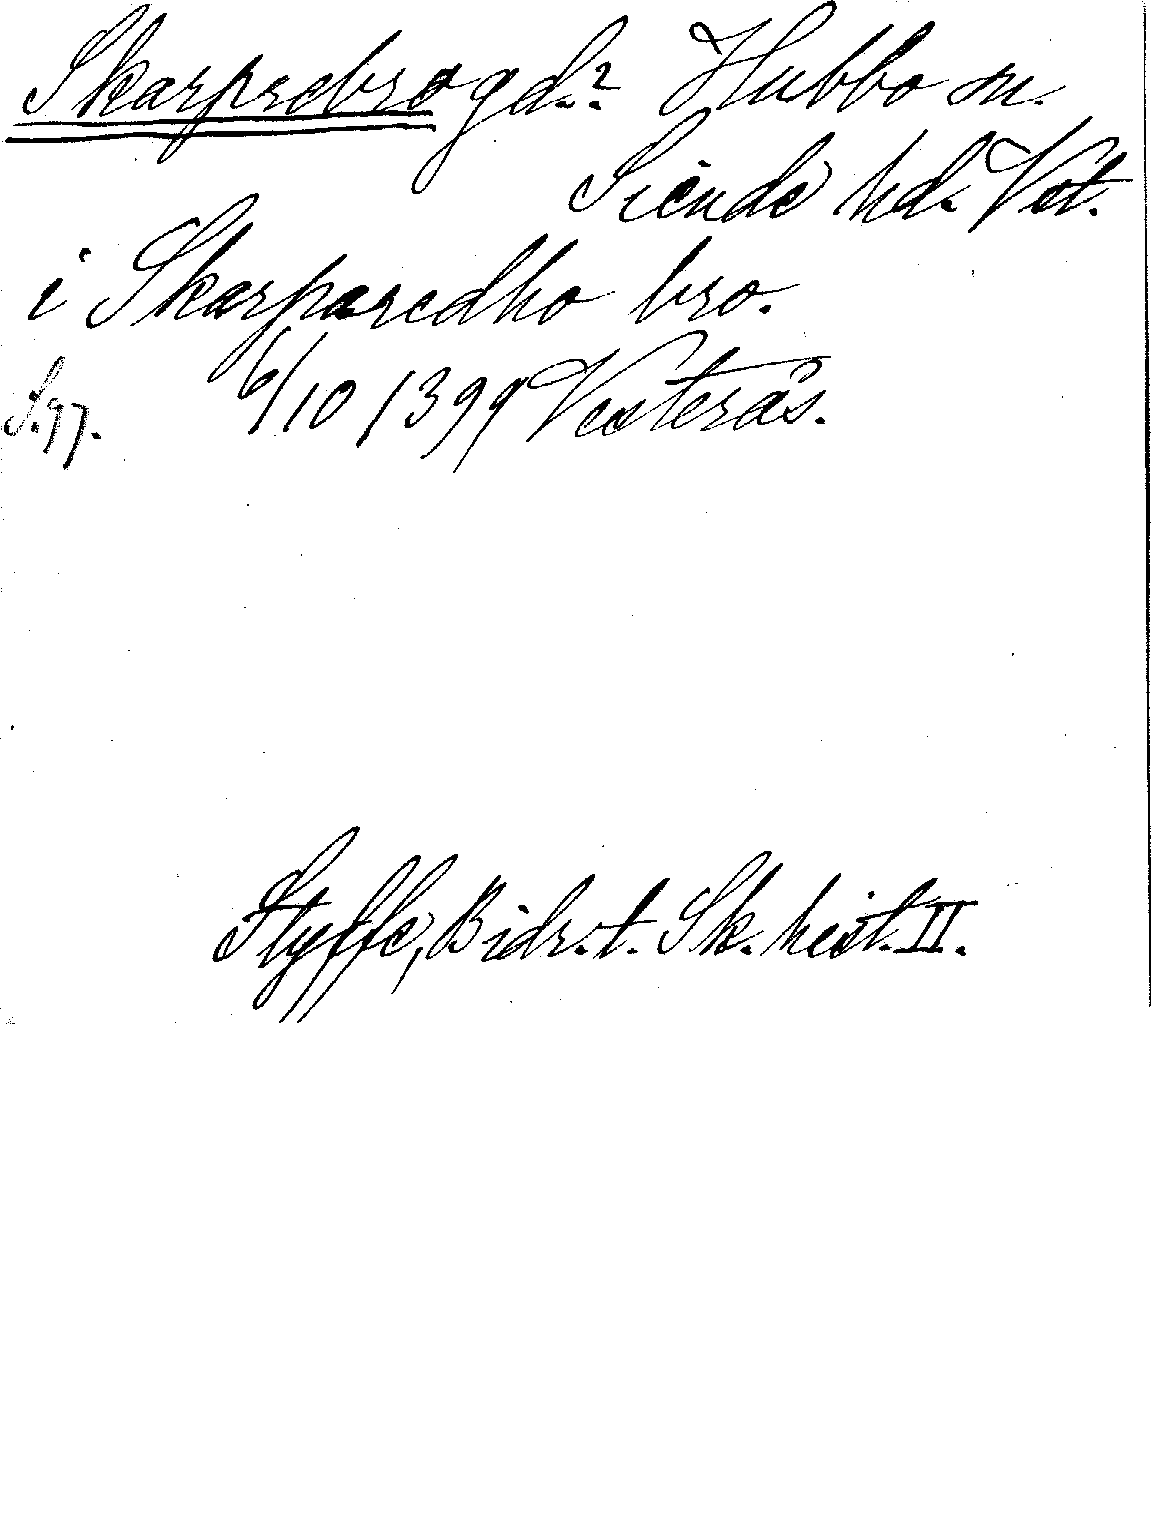 Skarprebro gd.? Hubbo sn.
Siende hd. Vst.
i Skarparedho bro.
S.97. 6/10 1399 Vesterås.
Styffe, Bidr. t. Sk. hist. II.